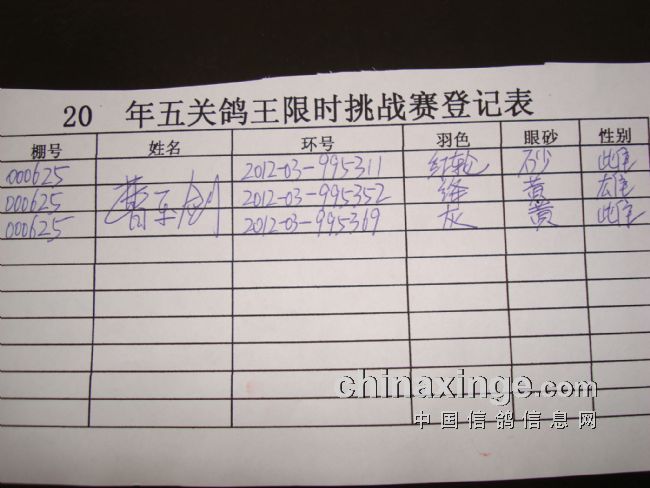 20 年五关鸽王限时挑战赛登记表
棚号 姓名 环号 羽色 眼砂 性别
000625 2012-03-995311 红轮 砂 雌
000625 2012-03-995352 绛 黄 雄
000625 2012-03-995369 灰 黄 雌
chinaxinge.com
中国信鸽信息网